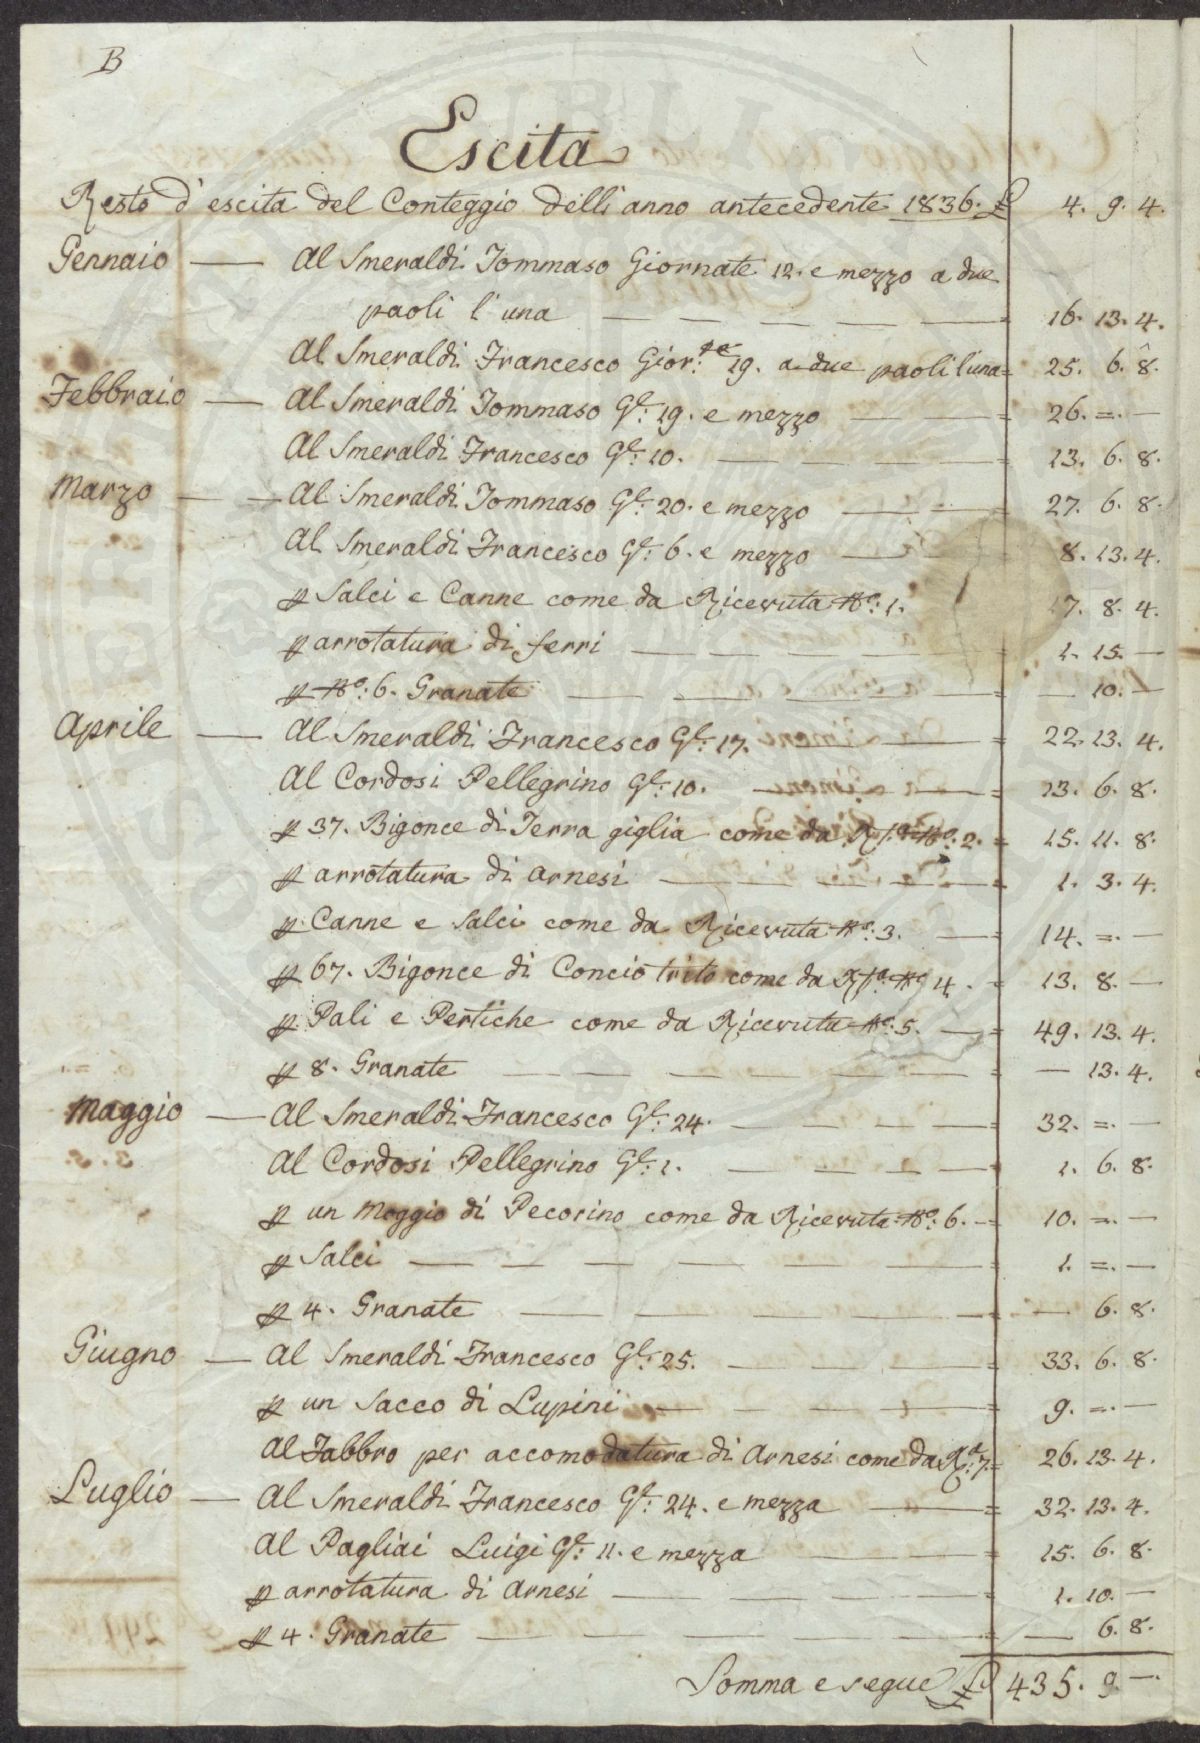 B
Escita
Resto d'escita del Conteggio delli anno antecedente 1836. £ 4. 9. 4.
Gennaio — Al Smeraldi Tommaso Giornate 12. e mezzo a due
paoli l'una — — — — — = 16. 13. 4.
Al Smeraldi Francesco Gior.te 19. a due paoli l'una = 25. 6. 8.
Febbraio — Al Smeraldi Tommaso G.e 19. e mezzo — — = 26. =. —
Al Smeraldi Francesco G.e 10. — — — — = 13. 6. 8.
Marzo — — Al Smeraldi Tommaso G.e 20. e mezzo — — = 27. 6. 8.
Al Smeraldi Francesco G.e 6. e mezzo — 8. 13. 4.
p Salci e Canne come da Ricevuta No: 1. 17. 8. 4.
p arrotatura di ferri — — — — — 1. 15. —
p No: 6. Granate — — — — — = — 10. —
Aprile — Al Smeraldi Francesco G.e 17. — — = 22. 13. 4.
Al Cordosi Pellegrino G.e 10. — — — = 13. 6. 8.
p 37. Bigonce di Terra giglia come da R.ta No: 2. = 15. 11. 8.
p arrotatura di arnesi — — — — — = 1. 3. 4.
p Canne e Salci come da Ricevuta No: 3. — = 14. =. —
p 67. Bigonce di Concio trito come da R.ta No 4. = 13. 8. —
p Pali e Pertiche come da Ricevuta No: 5. — = 49. 13. 4.
p 8. Granate — — — — — — = — 13. 4.
Maggio — Al Smeraldi Francesco G.e 24. — — — — = 32. =. —
Al Cordosi Pellegrino G.e 1. — — — — = 1. 6. 8.
p un Moggio di Pecorino come da Ricevuta No: 6. — = 10. =. —
p Salci — — — — — — — = 1. =. —
p 4. Granate — — — — — = — 6. 8.
Giugno — Al Smeraldi Francesco G.e 25. — — — — = 33. 6. 8.
p un Sacco di Lupini — — — — — = 9. =. —
Al Fabbro per accomodatura di Arnesi come da R.a 7 = 26. 13. 4.
Luglio — Al Smeraldi Francesco G.e 24. e mezza — — = 32. 13. 4.
Al Pagliai Luigi G.e 11. e mezza — — = 15. 6. 8.
p arrotatura di Arnesi — — — — — = 1. 10. —
p 4. Granate — — — — — = — 6. 8.
Somma e segue £ 435. 9. —